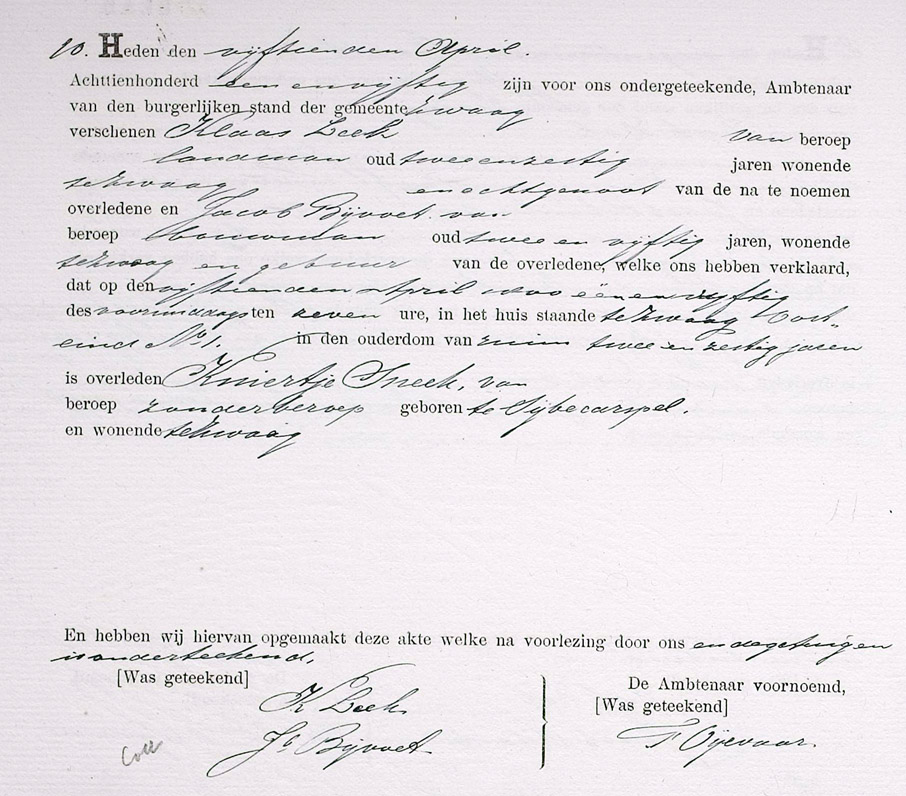 10. Heden den vijftienden April.
Achttienhonderd een en vijftig zijn voor ons ondergeteekende, Ambtenaar
van den burgerlijken stand der gemeente Zwaag
verschenen Klaas Leek van beroep
landman oud twee en zestig jaren wonende
te Zwaag en echtgenoot van de na te noemen
overledene en Jacob Bijvoet van
beroep bouwman oud twee en vijftig jaren, wonende
te Zwaag en gebuur van de overledene, welke ons hebben verklaard,
dat op den vijftienden April 1800 een en vijftig
des voormiddags ten zeven ure, in het huis staande te Zwaag Oost„
eind No 1. in den ouderdom van ruim twee en zestig jaren
is overleden Kniertje Sneek, van
beroep zonder beroep geboren te Sijbecarspel.
en wonende te Zwaag
En hebben wij hiervan opgemaakt deze akte welke na voorlezing door ons en de getuigen
is onderteekend.
[Was geteekend] De Ambtenaar voornoemd,
[Was geteekend]
K Leek
Jb Bijvoet